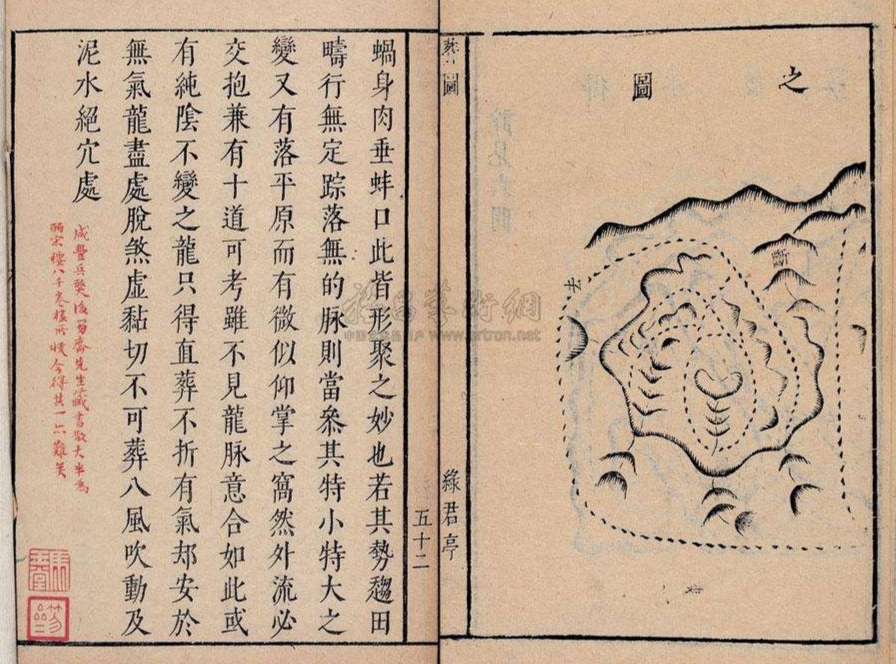 之圖
去
葬圖
綠君亭
五十二
蝸身肉垂蚌口此皆形聚之妙也若其勢趨田
疇行無定踪落無的脉則當叅其特小特大之
變又有落平原而有微似仰掌之窩然外流必
交抱兼有十道可考雖不見龍脉意合如此或
有純陰不變之龍只得直葬不折有氣却安於
無氣龍盡處脫煞虛黏切不可葬八風吹動及
泥水絕穴處
咸豐兵燹後留齋先生藏書散大半為
皕宋樓八千卷樓所收今得其一亦難矣
www.artron.net